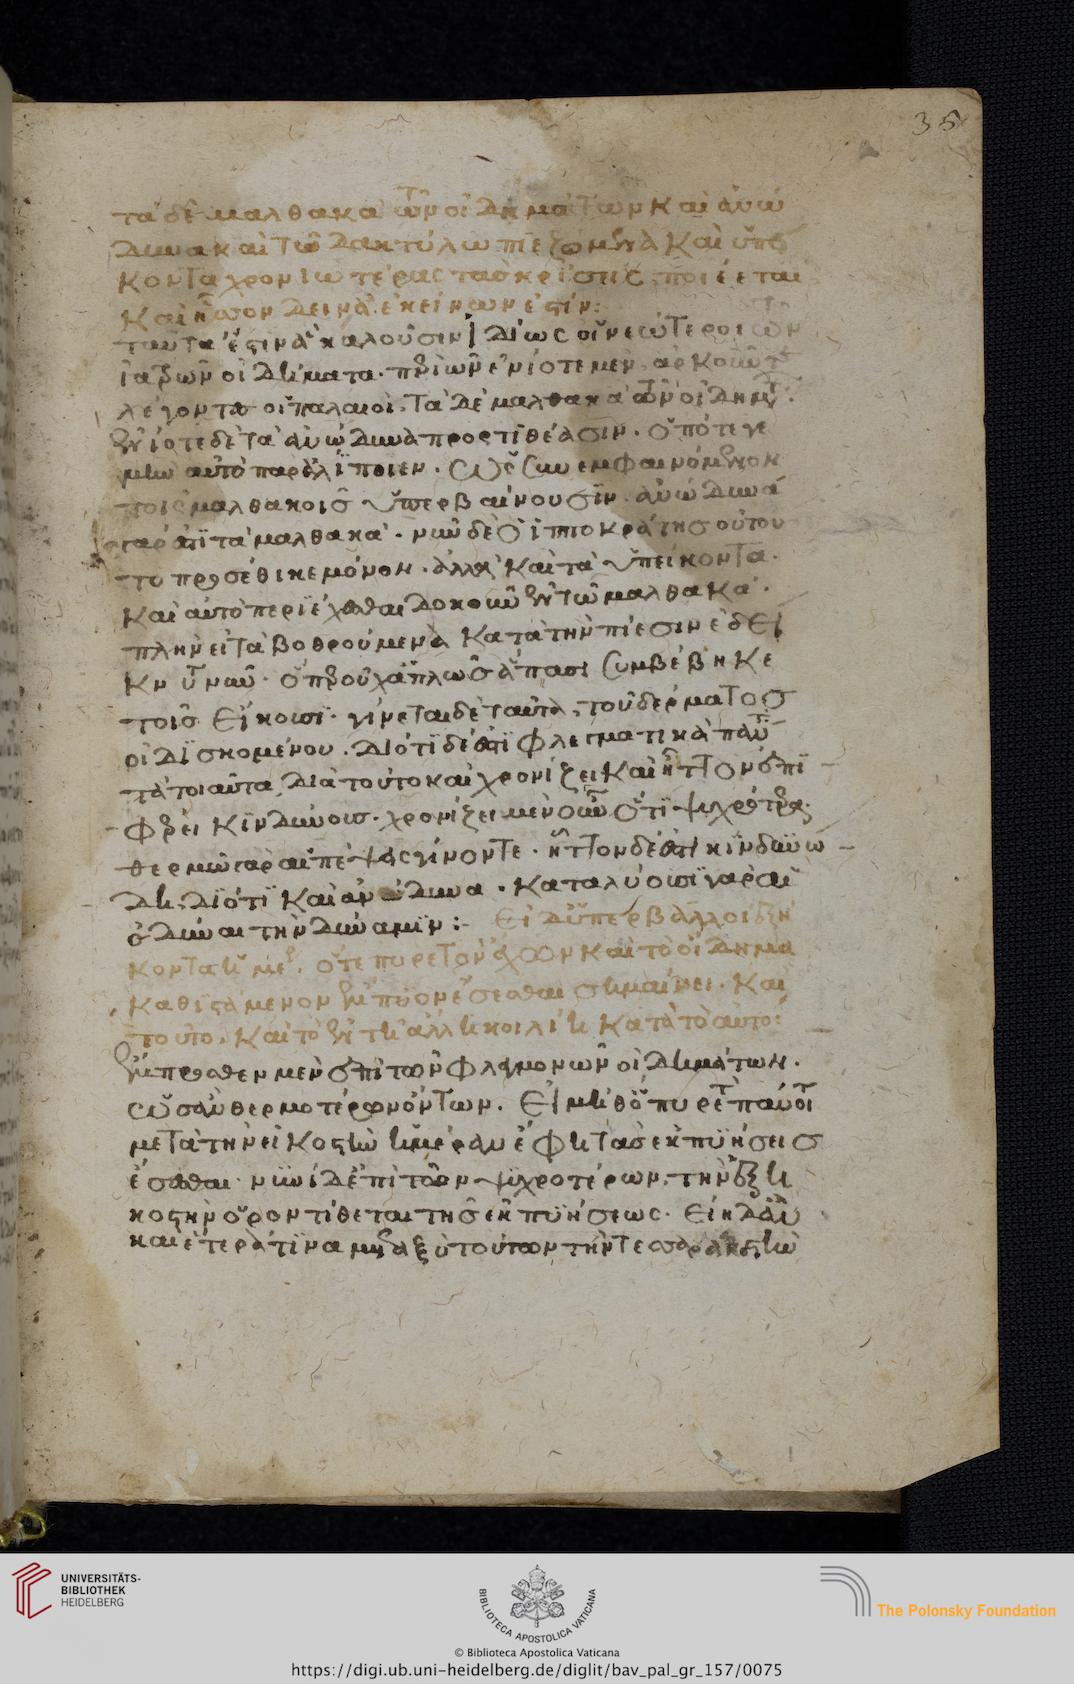 35
τὰ δὲ μαλθακὰ τῶν οἰδημάτων καὶ ἀνώ
δυνα καὶ τῶ δακτύλω πιεζόμενα καὶ ὑπεί
κοντα χρονιωτέρας τὰς κρίσεις ποιέεται
καὶ ἧττον δεινὰ ἐκείνων ἐστίν:
ταῦτα ἔστιν ἃ καλοῦσιν ἰδίως οἱ νεώτεροι τῶν
ἰατρῶν οἰδήματα. περὶ ὧν ἐνίοτε μὲν ἀρκοῦνται
λέγοντες οἱ παλαιοὶ, τὰ δὲ μαλθακὰ τῶν οἰδημάτων.
ἐνίοτε δὲ τὰ ἀνώδυνα προστιθέασιν. ὁπότε γε
μὴν αὐτὸ παραλίποιεν. ὡς συνεμφαινόμενον
τοῖς μαλθακοῖς ὑπερβαίνουσιν. ἀνώδυνα
γάρ ἐστι τὰ μαλθακά. νῦν δὲ ὁ ἱπποκράτης οὐ τοῦ
το προσέθηκε μόνον. ἀλλὰ καὶ τὰ ὑπείκοντα.
καὶ αὐτὸ περιέχεσθαι δοκοῦν ἐν τῶ μαλθακά.
πλὴν εἰ τὰ βοθρούμενα κατὰ τὴν πίεσιν ἐδεί
κνυεν νῦν. ὅπερ οὐχ ἁπλῶς ἅπασι συμβέβηκε
τοῖς εἴκουσι. γίνεται δὲ ταῦτα, τοῦ δέρματος
οἰδισκομένου. διότι δέ ἐστι φλεγματικὰ πάντα
τὰ τοιαῦτα, διὰ τοῦτο καὶ χρονίζει καὶ ἧττον ἐπι
φέρει κινδύνους. χρονίζει μὲν οὖν ὅτι ψυχρότερα.
θερμῶ γὰρ αἱ πέψεις γίνονται. ἧττον δέ ἐστι κινδυνώ
δη, διότι καὶ ἀνώδυνα. καταλύουσι γὰρ αἱ
ὀδύναι τὴν δύναμιν:- εἰ δ' ὑπερβάλλοι ἑξή
κοντα ἡμέρας, ὅ τε πυρετὸν ἔχων καὶ τὸ οἴδημα
καθιστάμενον ἔμπυον ἔσεσθαι σημαίνει. καὶ
τοῦτο, καὶ τὸ ἐν τῆ ἄλλη κοιλίη κατὰ τὸ αὐτό:
ἔμπροσθεν μὲν ἐπὶ τῶν φλεγμονωδῶν οἰδημάτων.
ὡς ἂν θερμοτέρων ὄντων. εἰ μὴ θ' ὁ πυρετὸς παύοιτο
μετὰ τὴν εἰκοστὴν ἡμέραν ἔφη τὰς ἐκπυήσεις
ἔσεσθαι. νυνὶ δὲ ἐπὶ τῶν ψυχροτέρων, τὴν ἑξη
κοστὴν ὅρον τίθεται τῆς ἐκπυήσεως. εἴη δ' ἂν
καὶ ἑτέρα τις ἡ μεταξὺ τούτων τήν τε τεσσαρακοστὴν
UNIVERSITÄTS-
BIBLIOTHEK
HEIDELBERG
BIBLIOTECA APOSTOLICA VATICANA
The Polonsky Foundation
© Biblioteca Apostolica Vaticana
https://digi.ub.uni-heidelberg.de/diglit/bav_pal_gr_157/0075